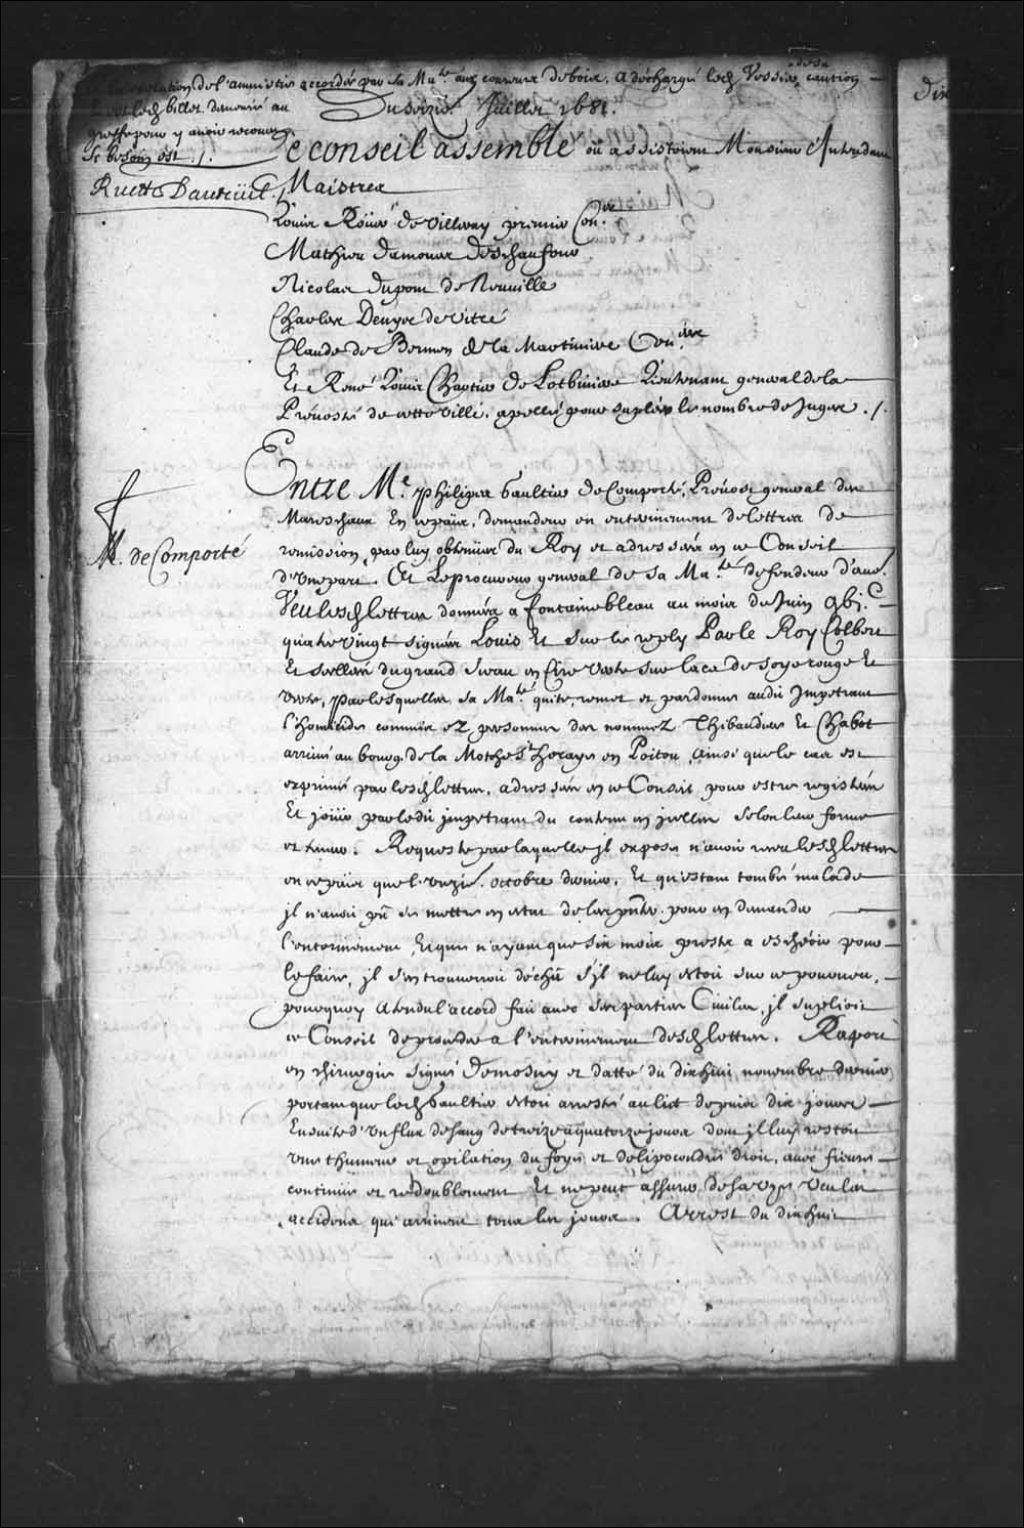 de l'amnistie accordée par sa Ma.té aux coureurs de bois, a deschargé led. Vessier caution
de sa
led. billet demeuré au
greffe pour y avoir recours
Se besoin est ./.
Ruette Dauteüil ./.
Du seizie. Juillet 1681.
Le conseil assemblé où assistoient Monsieur l'Intendant
Maistres
Louis Roüer de Villeray premier Con.er
Mathieu Damours Deschaufour
Nicolas Dupont de Neuville
Charles Denys de Vitré
Claude de Bermen de la Martiniere Con.ers
Et René Louis Chartier de Lotbiniere Lieutenant general de la
Prévosté de cette ville, apellé pour supléer le nombre de Juges ./.
M. de Comporté
Entre M.e philipes Gaultier de Comporté, Prévost general des
Mareschaux En ce païs, demandeur en enterinement de lettres de
remission par luy obtenües du Roy et adressées en ce Conseil
d'une part, Et Le procureur general de sa Ma.té defendeur d'au.e
Veu lesd. lettres données a fontainebleau au mois de Juin gbj.C
quatre vingt signées Louis Et sur le reply Par le Roy Colbert
Et scellées du grand sceau en Cire verte sur lacs de soye rouge Et
verte, par lesquelles sa Ma.té quite, remet et pardonne audit Impetrant
l'homicide commis ez personnes des nommez Thibaudier Et Chabot
arrivé au bourg de la Mothe S.t heraye en Poitou, ainsi que le cas est
exprimé par lesd. lettres, adressées en ce Conseil pour estre registrées
Et joüir par ledit jmpetrant du contenu en jcelles selon leur forme
et teneur. Requeste par laquelle jl expose n'avoir receu lesd. lettres
en ce païs que l'unzie. octobre dernier, Et qu'estant tombé malade
jl n'avoit pû se mettre en estat de les pnter pour en demander
l'enterinement, Et que n'ayant que six mois prests a escheoir pour
le faire, jl s'en trouveroit déchû s'jl ne luy estoit sur ce pourveu,
pourquoy atendu l'accord fait avec ses parties Civiles, jl suplioit
ce Conseil de proceder a l'enterinement desd. lettres. Raport
en chirurgie signé Demosny et datté du dixhuit novembre dernier
portant que led. Gaultier estoit arresté au lict depuis dix jours
Ensuite d'un flux de sang de treize a quatorze jours dont jl luy restoit
une thumeur et opilation du foye et de l'ipocondre droit, avec fievre
continüe et redoublement Et ne peut assurer de sa vye veu les
accidens qui arrivent tous les jours. Arrest du dixhuit